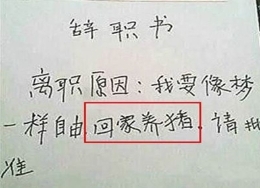 辞职书
离职原因：我要像梦
一样自由，回家养猪，请批
准